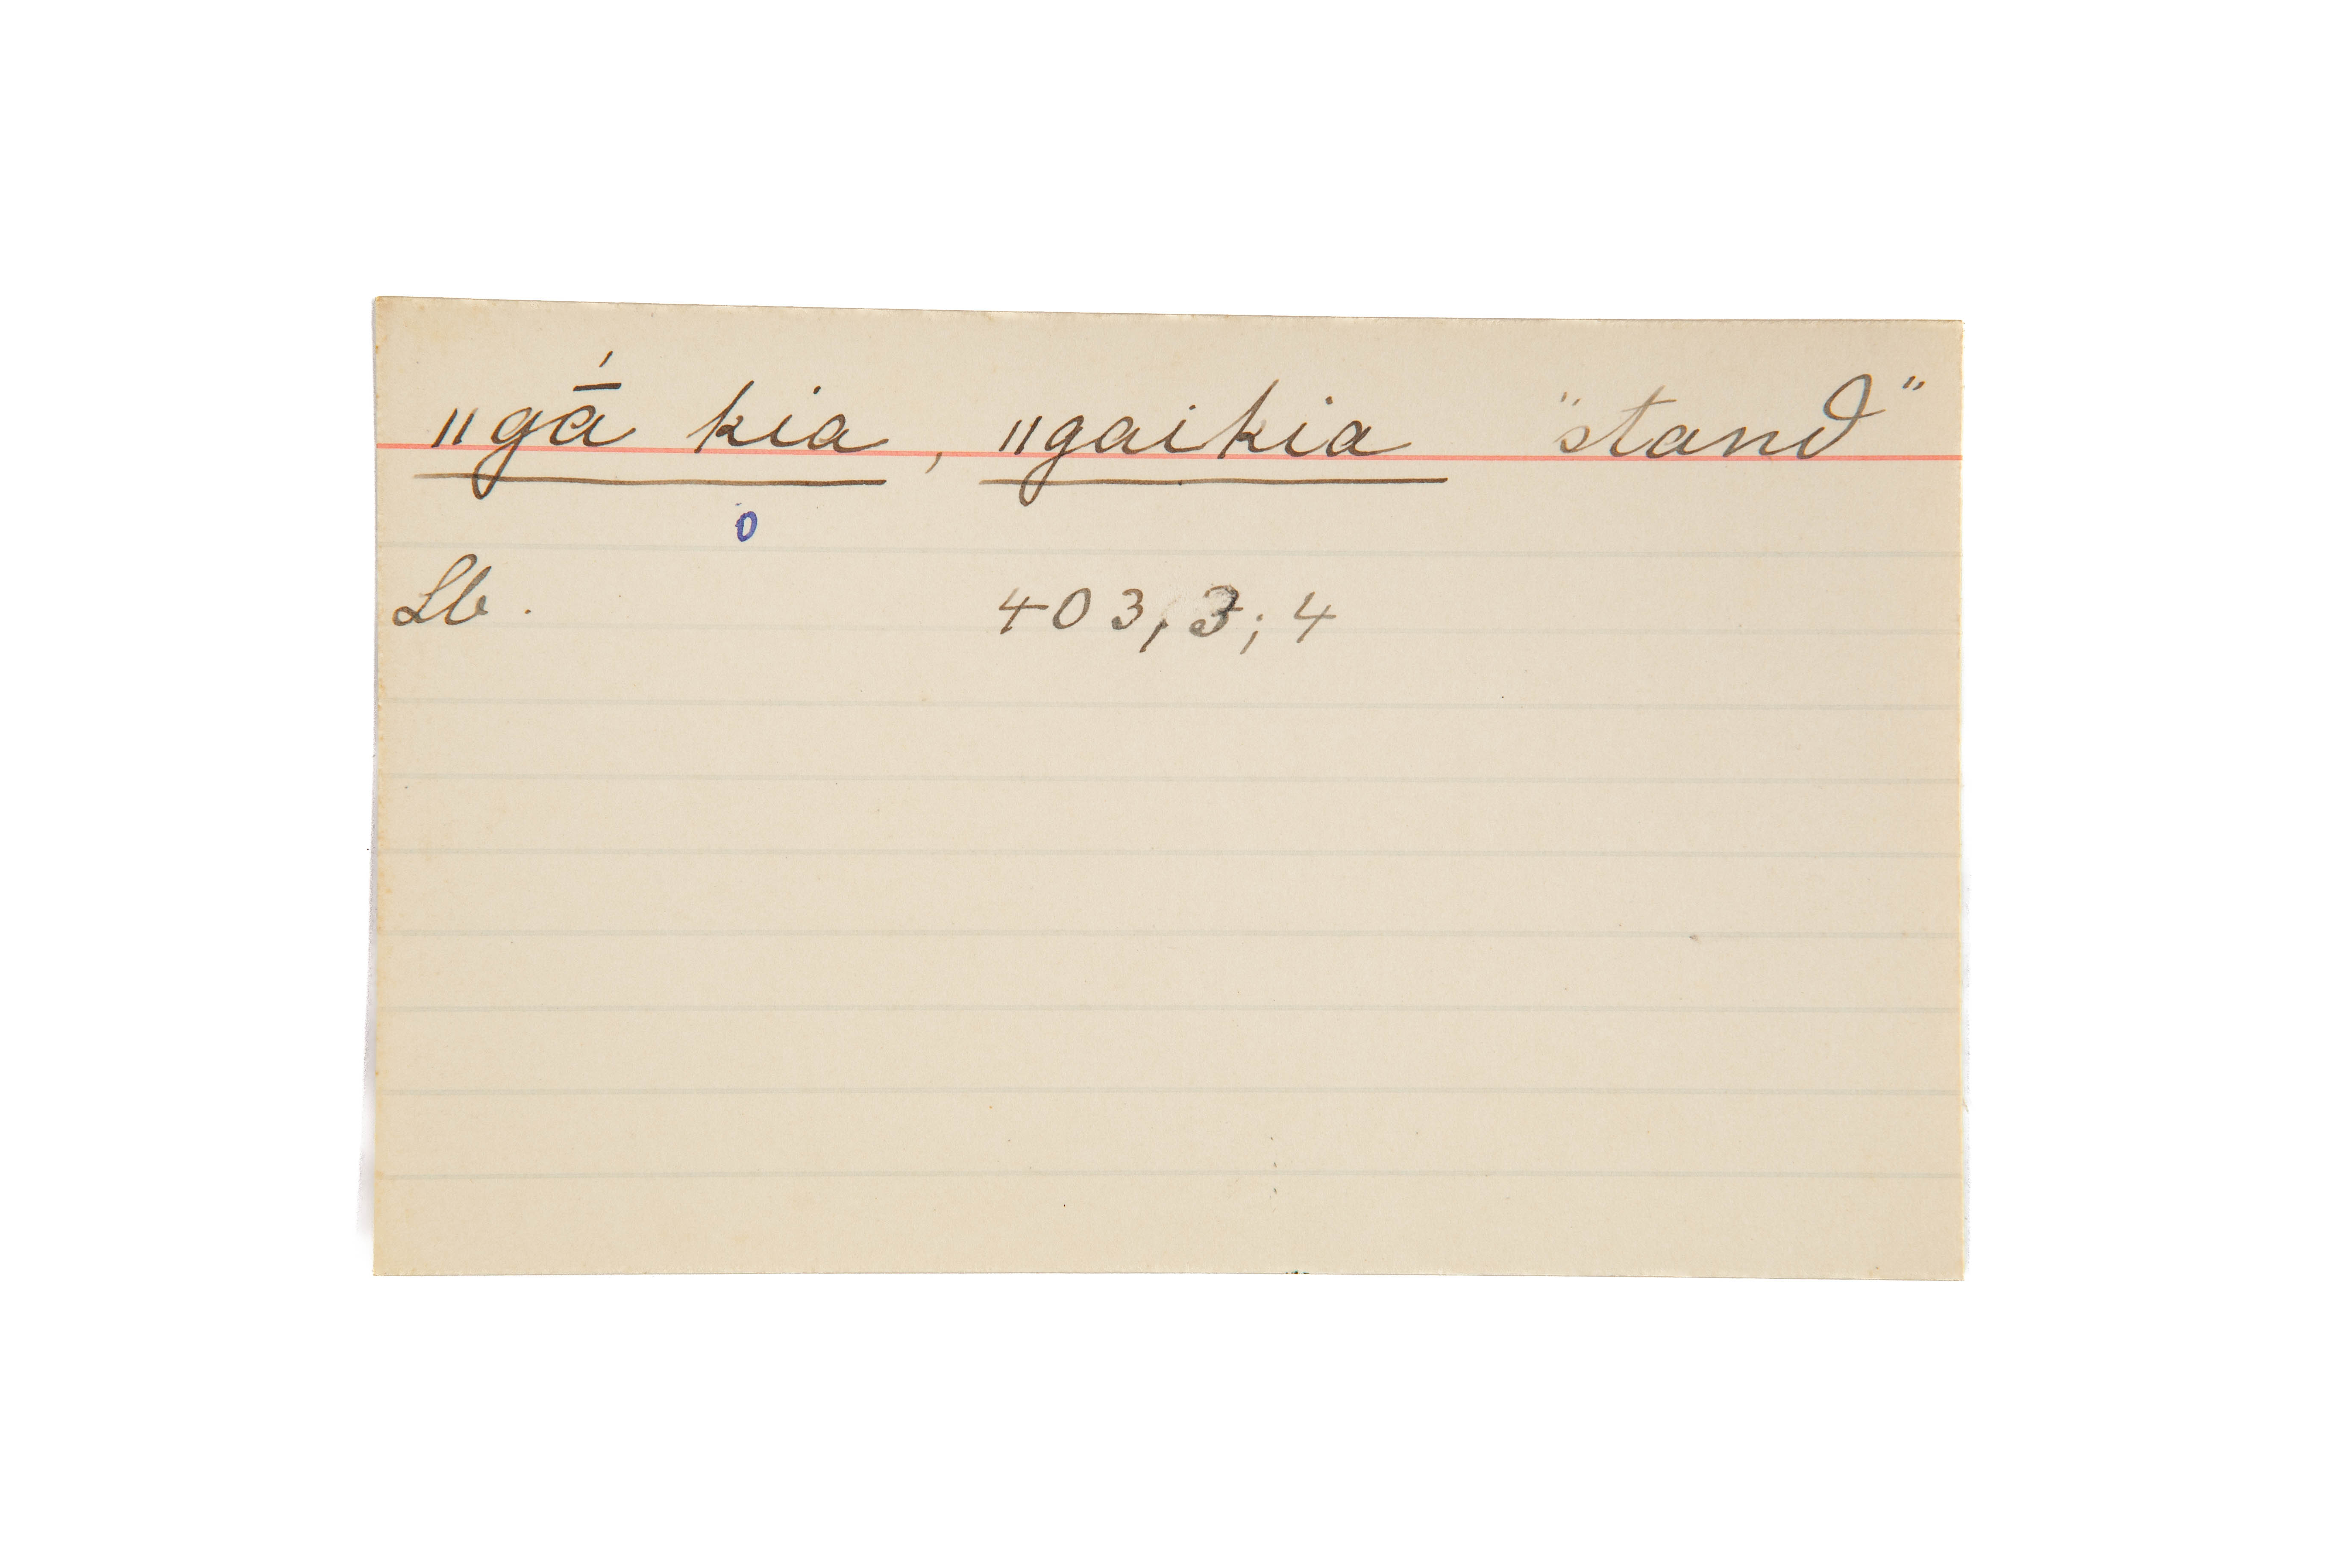 ǁgā́ kia, ǁgaikia "stand"
o
Lb. 403,3;4